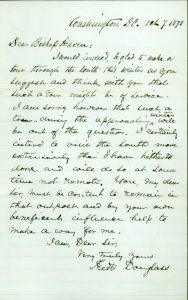 Washington D.C. Oct 7. 1878
Dear Bishop Haven:
I should indeed be glad to make a
tour through the South this Winter as you
suggest and think with you that
such a tour might be of service.
I am sorry however that such a
tour during the approaching winter will
be out of the question. I certainly
intend to visit the South more
extensively than I have hitherto
done and will do so at some
time not remote. You, my dear
Sir, must be content to remain in
that outpost and by your own
beneficent influence help to
make a way for me.
I am, Dear Sir,
Very truly yours
Fredk Douglass